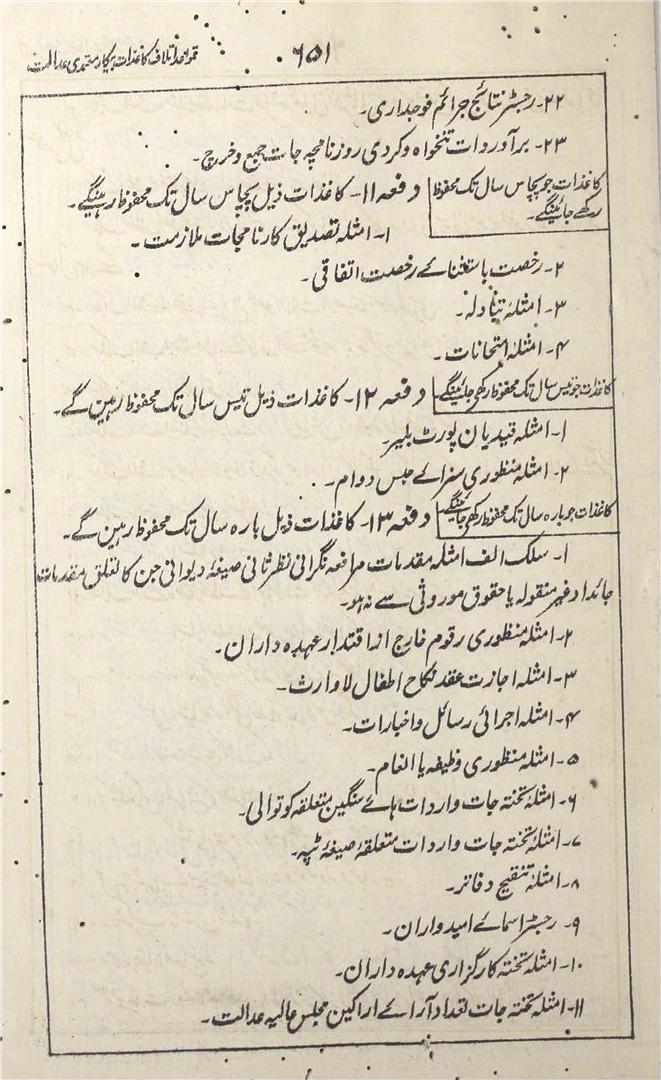 ۶۵۱
قواعد اتلاف کاغذات بیکار معتمدی عدالت
۲۲۔ رجسٹر نتائج جرائم فوجداری۔
۲۳۔ برآوردات تنخواہ وکردی روزنامچہ جات جمع وخرچ۔
کاغذات جو پچاس سال تک محفوظ
رکھے جائینگے۔
دفعہ ۱۱۔ کاغذات ذیل پچاس سال تک محفوظ رہینگے۔
۱۔ امثلہ تصدیق کارنامجات ملازمت۔
۲۔ رخصت باستثنائے رخصت اتفاقی۔
۳۔ امثلۂ تبادلہ۔
۴۔ امثلۂ امتحانات۔
کاغذات جو تیس سال تک محفوظ رکھی جائینگے
دفعہ ۱۲۔ کاغذات ذیل تیس سال تک محفوظ رہین گے۔
۱۔ امثلہ قیدیان پورٹ بلیر۔
۲۔ امثلہ منظوری سزائے حبس دوام۔
کاغذات جو بارہ سال تک محفوظ رکھی جائینگے
دفعہ ۱۳۔ کاغذات ذیل بارہ سال تک محفوظ رہین گے۔
۱۔ سلک الف امثلہ مقدمات مرافعہ نگرانی نظرثانی صیغۂ دیوانی جن کا تعلق مقدمات
جائداد غیر منقولہ یا حقوق موروثی سے نہ ہو۔
۲۔ امثلہ منظوری رقوم خارج از اقتدار عہدہ داران۔
۳۔ امثلہ اجازت عقد نکاح اطفال لاوارث۔
۴۔ امثلہ اجرائی رسائل واخبارات۔
۵۔ امثلہ منظوری وظیفہ یا انعام۔
۶۔ امثلۂ تختہ جات واردات ہائے سنگین متعلقہ کوتوالی۔
۷۔ امثلۂ تختہ جات واردات متعلقۂ صیغۂ ٹپہ۔
۸۔ امثلۂ تنقیح دفاتر۔
۹۔ رجسٹر اسمائے امیدواران۔
۱۰۔ امثلہ تختہ کارگزاری عہدہ داران۔
۱۱۔ امثلہ تختہ جات تعداد آرائے اراکین مجلس عالیہ عدالت۔